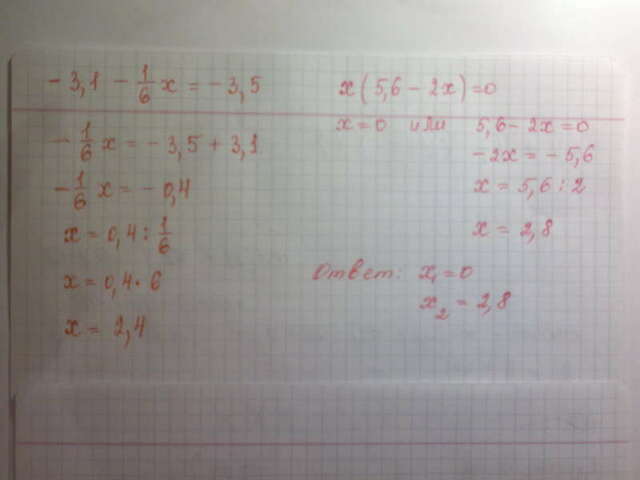 - 3,1 - 1/6 x = - 3,5
- 1/6 x = - 3,5 + 3,1
- 1/6 x = - 0,4
x = 0,4 : 1/6
x = 0,4 · 6
x = 2,4
x ( 5,6 - 2x ) = 0
x = 0 или 5,6 - 2x = 0
- 2x = - 5,6
x = 5,6 : 2
x = 2,8
Ответ: x₁ = 0
x₂ = 2,8